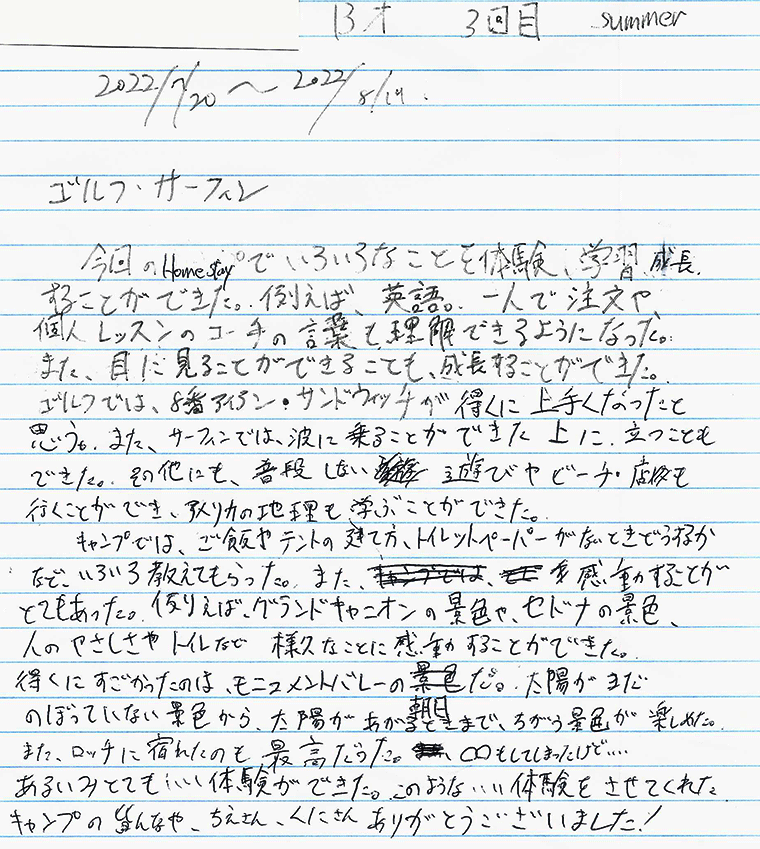 13才 3回目 summer
2022/7/20 〜 2022/8/19.
ゴルフ・サーフィン
今回のHomestayでいろいろなことを体験、学習、成長
することができた。例えば、英語。一人で注文や
個人レッスンのコーチの言葉も理解できるようになった。
また、目に見ることができることも、成長することができた。
ゴルフでは、8番アイアン・サンドウィッチが得くに上手くなったと
思う。また、サーフィンでは、波に乗ることができた上に、立つことも
できた。その他にも、普段しない遊びやビーチ・店も
行くことができ、アメリカの地理も学ぶことができた。
キャンプでは、ご飯やテントの建て方、トイレットペーパーがないときどうするか
など、いろいろ教えてもらった。また、感動することが
とてもあった。例えば、グランドキャニオンの景色や、セドナの景色、
人のやさしさやトイレなど様々なことに感動することができた。
得くにすごかったのは、モニュメントバレーの朝日だ。太陽がまだ
のぼっていない景色から、太陽があがるときまで、ちがう景色が楽しめた。
また、ロッチに宿れたのも最高だった。〇〇もしてしまったけど....
あるいみとてもいい体験ができた。このような いい体験をさせてくれた
キャンプのみんなや、ちえさん、くにさん ありがとうございました!